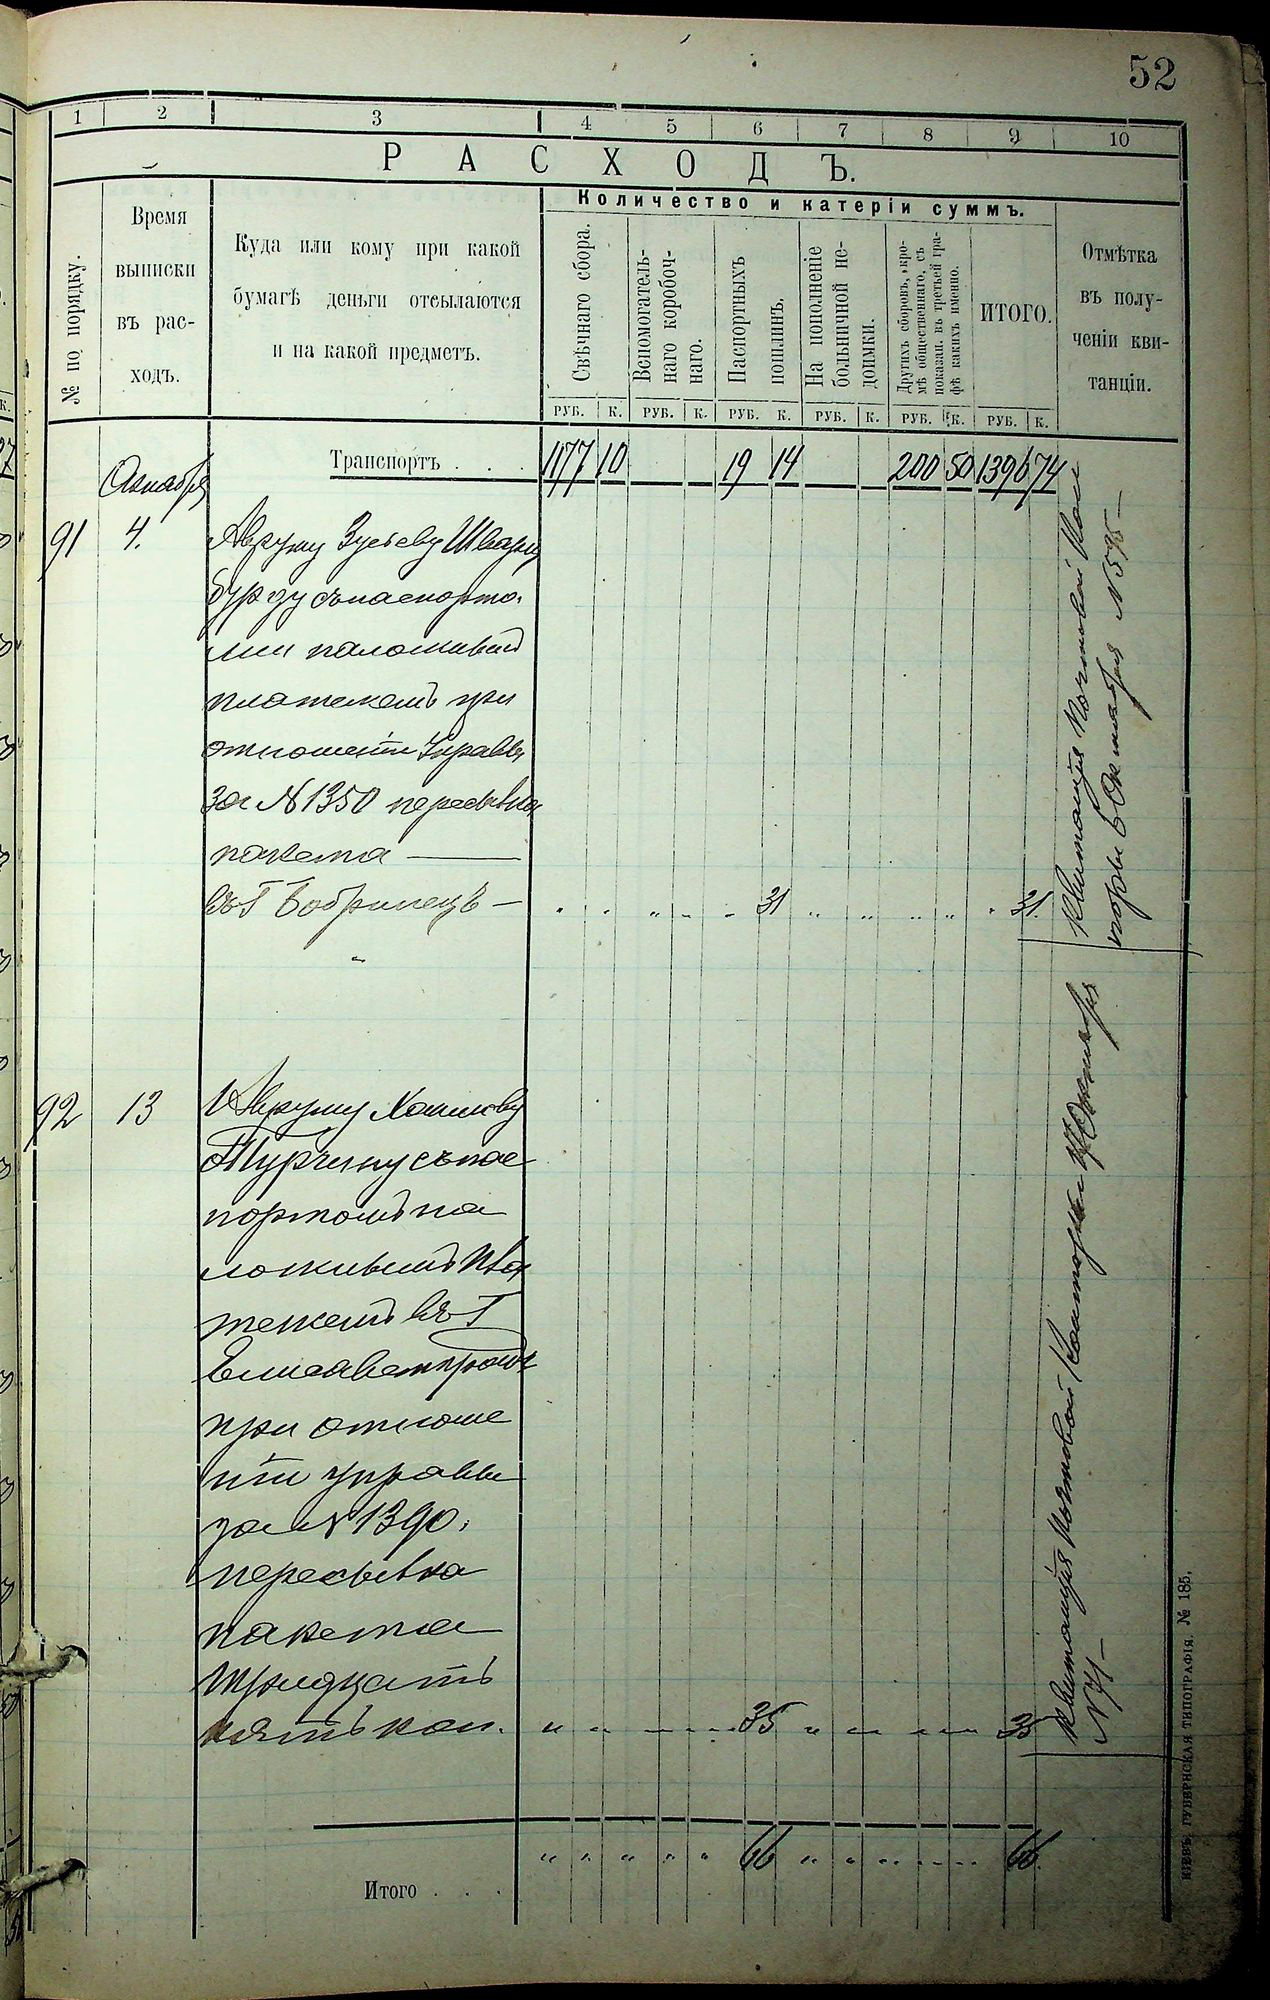 52
1 2 3 4 5 6 7 8 9 10
РАСХОДЪ.
№ по порядку.
Время
выписки
въ рас-
ходъ.
Куда или кому при какой
бумагѣ деньги отсылаются
и на какой предметъ.
Количество и катеріи суммъ.
Свѣчнаго сбора.
Вспомогатель-
наго коробоч-
наго.
Паспортныхъ
пошлинъ.
На пополненіе
больничной не-
доимки.
Другихъ сборовъ, кро-
мѣ общественнаго, съ
показан. въ третьей гра-
фѣ какихъ именно.
ИТОГО.
Отмѣтка
въ полу-
ченіи кви-
танціи.
РУБ. К. РУБ. К. РУБ. К. РУБ. К. РУБ. К. РУБ. К.
Транспортъ . . . 1177 10 19 14 200 50 1396 74
Октября
91 4. Авруму Зусьеву Шварц
бурду съ паспорто.
ми наложенымъ
платежемъ при
отношеніи Управы
за № 1350 пересылка
пакета —
въ Г Бобринецъ — 31 31.
Квитанція Почтовой Кон
торы 6 Октября № 595 —
92 13 Авруму
Турчину съ пас
портомъ на
ложенымъ пла
тежемъ въ Г
Елисаветградъ
при отноше
ніи управы
за № 1390.
пересылка
пакета
тридцать
пять коп. " " 35 " 35
Квитанція Почтовой Конторы Октября
№ 71 —
Итого . . . " " " " " 66 " " 66.
КІЕВЪ, ГУБЕРНСКАЯ ТИПОГРАФІЯ. № 185.